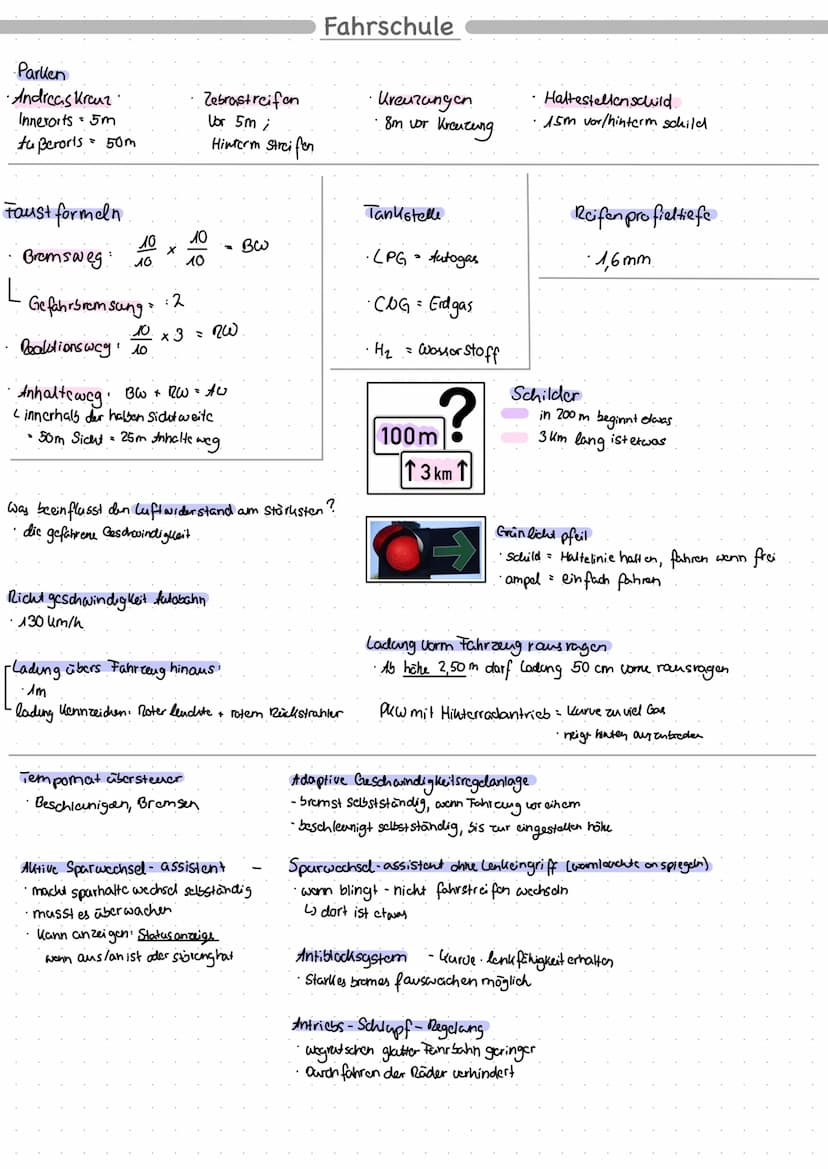 Fahrschule
Parken
· Andreas Kreuz ·
Innerorts = 5m
Außerorts = 50m
· Zebrastreifen
Vor 5m ;
Hinterm Streifen
· Kreuzungen
· 8m vor Kreuzung
· Haltestellenschild
· 15m vor/hinterm schild
Faustformeln
· Bremsweg: 10/10 x 10/10 = BW
Gefahrbremsung = :2
· Reaktionsweg: 10/10 x 3 = RW
· Anhalteweg: BW + RW = AW
innerhalb der halben Sichtweite
= 50m Sicht = 25m Anhalteweg
Tankstelle
· LPG = Autogas
· CNG = Erdgas
· H2 = Wasserstoff
Reifenprofieltiefe
· 1,6mm
?
100 m
↑3 km↑
Schilder
in 200m beginnt etwas
3km lang ist etwas
Was beeinflusst den Luftwiderstand am Stärksten?
· die gefahrene Geschwindigkeit
Grünlicht pfeil
· Schild = Haltelinie halten, fahren wenn frei
· ampel = einfach fahren
Richtgeschwindigkeit Autobahn
· 130 km/h
Ladung übers Fahrzeug hinaus:
· 1m
ladung kennzeichen: Roter leuchte + rotem Rückstrahler
Ladung vorm Fahrzeug rausragen
· Ab höhe 2,50m darf Ladung 50 cm vorne rausragen
PKW mit Hinterradantrieb = Kurve zu viel Gas
· neigt hinten auszubrechen
Tempomat übersteuer
· Beschleunigen, Bremsen
Adaptive Geschwindigkeitsregelanlage
- bremst selbstständig, wenn Fahrzeug vor einem
- beschleunigt selbstständig, bis zur eingestellten höhe
Aktive Spurwechsel-assistent –
· macht spurhalte wechsel selbständig
· musst es überwachen
· Kann anzeigen: Statusanzeige
wenn aus/an ist oder störung hat
Spurwechsel-assistent ohne Lenkeingriff (warnleuchte an spiegeln)
· wenn blingt - nicht fahrstreifen wechseln
↳ dort ist etwas
Antiblocksystem - Kurve · lenkfähigkeit erhalten
· Starkes bremsen / auswachen möglich
Antriebs-Schlupf-Regelung
· wegrutschen glatter Fahrbahn geringer
· Durchfahren der Räder verhindert